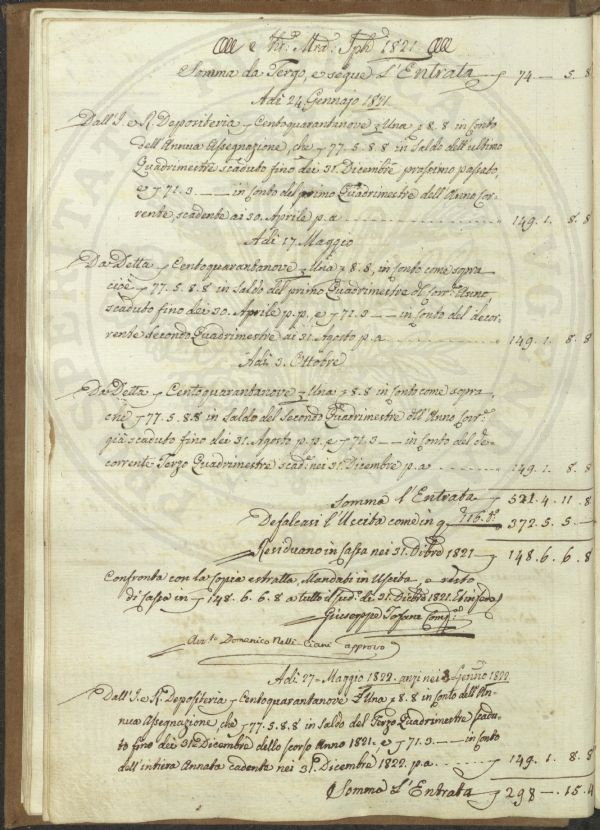 e 1821
Somma da Tergo, e segue L'Entrata 74 — 5. 8
Adi 24 Gennajo 1821
Dall'I. e R. Depositeria Centoquarantanove Una 8.8 in Conto
dell'Annua Assegnazione, che 77. 5. 8. 8 in Saldo dell'ultimo
Quadrimestre scaduto fino dei 31. Dicembre prossimo passato,
e 71. 3. — — in Conto del primo Quadrimestre dell'Anno Cor-
rente scadente ai 30. Aprile p.a 149. 1. 8. 8
Adi 17. Maggio
Da Detta Centoquarantanove Una 8. 8, in Conto come sopra
cioè 77. 5. 8. 8 in Saldo del primo Quadrimestre Anno,
scaduto fino dei 30. Aprile p.p. e 71. 3 — — in Conto del decor-
rente secondo Quadrimestre ai 31. Agosto p.a 149. 1. 8. 8
Adi 3. Ottobre
Da Detta Centoquarantanove Una 8. 8 in Conto come sopra,
che 77. 5. 8. 8 in Saldo del Secondo Quadrimestre dell'Anno
già scaduto fino dei 31. Agosto p.p. e 71. 3 — — in Conto del de-
corrente Terzo Quadrimestre nei 31. Dicembre p.a 149. 1. 8. 8
Somma l'Entrata 521. 4. 11. 8
Defalcasi l'Uscita come in 372. 5. 5. —
Residuano in Cassa nei 31. 1821 148. 6. 6. 8
Confronta con la Copia estratta, Mandati in Uscita, e resto
di Cassa in 148. 6. 6. 8 a tutto il dì 31. 1821. In fede
Giuseppe
Domenico Nelli Ciani approvo
Adi 27 Maggio 1822. anzi nei 3 1822
Dall'I. e R. Depositeria Centoquarantanove Una 8. 8 in Conto dell'An-
nua Assegnazione, che 77. 5. 8. 8 in Saldo del Terzo Quadrimestre scadu-
to fino dei 31. Dicembre dello scorso Anno 1821. e 71. 3. — — in Conto
dell'intiera Annata cadente nei 31. Dicembre 1822. p.a 149. 1. 8. 8
Somma L'Entrata 298 — 15. 4